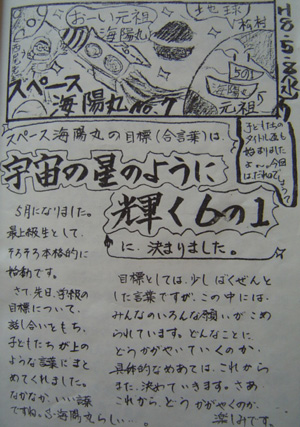 H8.5.8(水)
おーい元祖
海陽丸
地球
松村
5の1
海陽丸
元祖
スペース
海陽丸 no.7
スペース海陽丸の目標(合言葉)は
子どもたちの
タイトル画も
始まりまし
今回は
だれ
宇宙の星のように
輝く6の1
に、決まりました。
5月になりました。
最上級生として、
そろそろ本格的に
始動です。
さて、先日、学級の
目標について、
話し合いをもち、
子どもたちが上の
ような言葉にまと
めてくれました。
なかなか、いい言葉
ですね。S・海陽丸らしい…。
目標としては、少しばくぜんと
した言葉ですが、この中には、
みんなのいろんな願いがこめ
られています。どんなことに
どうかがやいていくのか、
具体的なめあては、これから
また、決めていきます。さあ
これから、どうかがやくのか、
楽しみです。